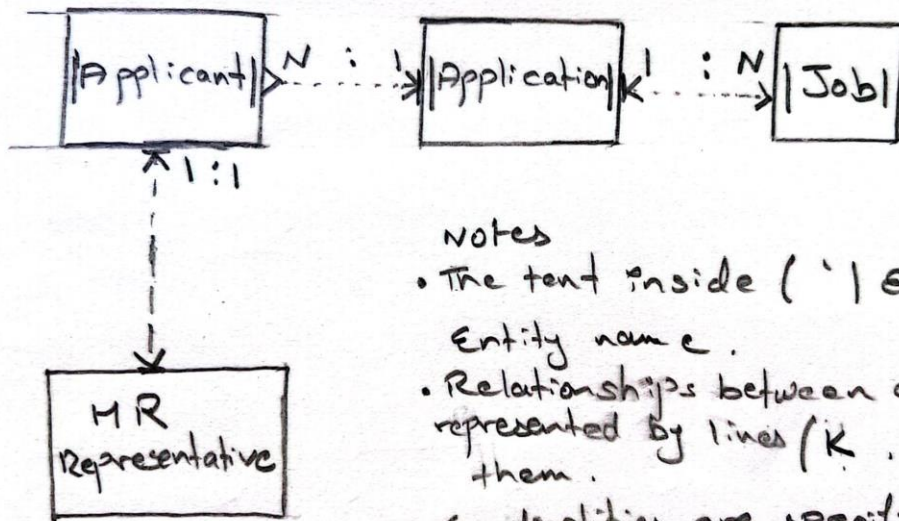 |Applicant| N : 1 |Application| 1 : N |Job|
1:1
HR
Representative
Notes
• The tent inside ( `|
Entity name.
• Relationships between
represented by lines (K .
them.